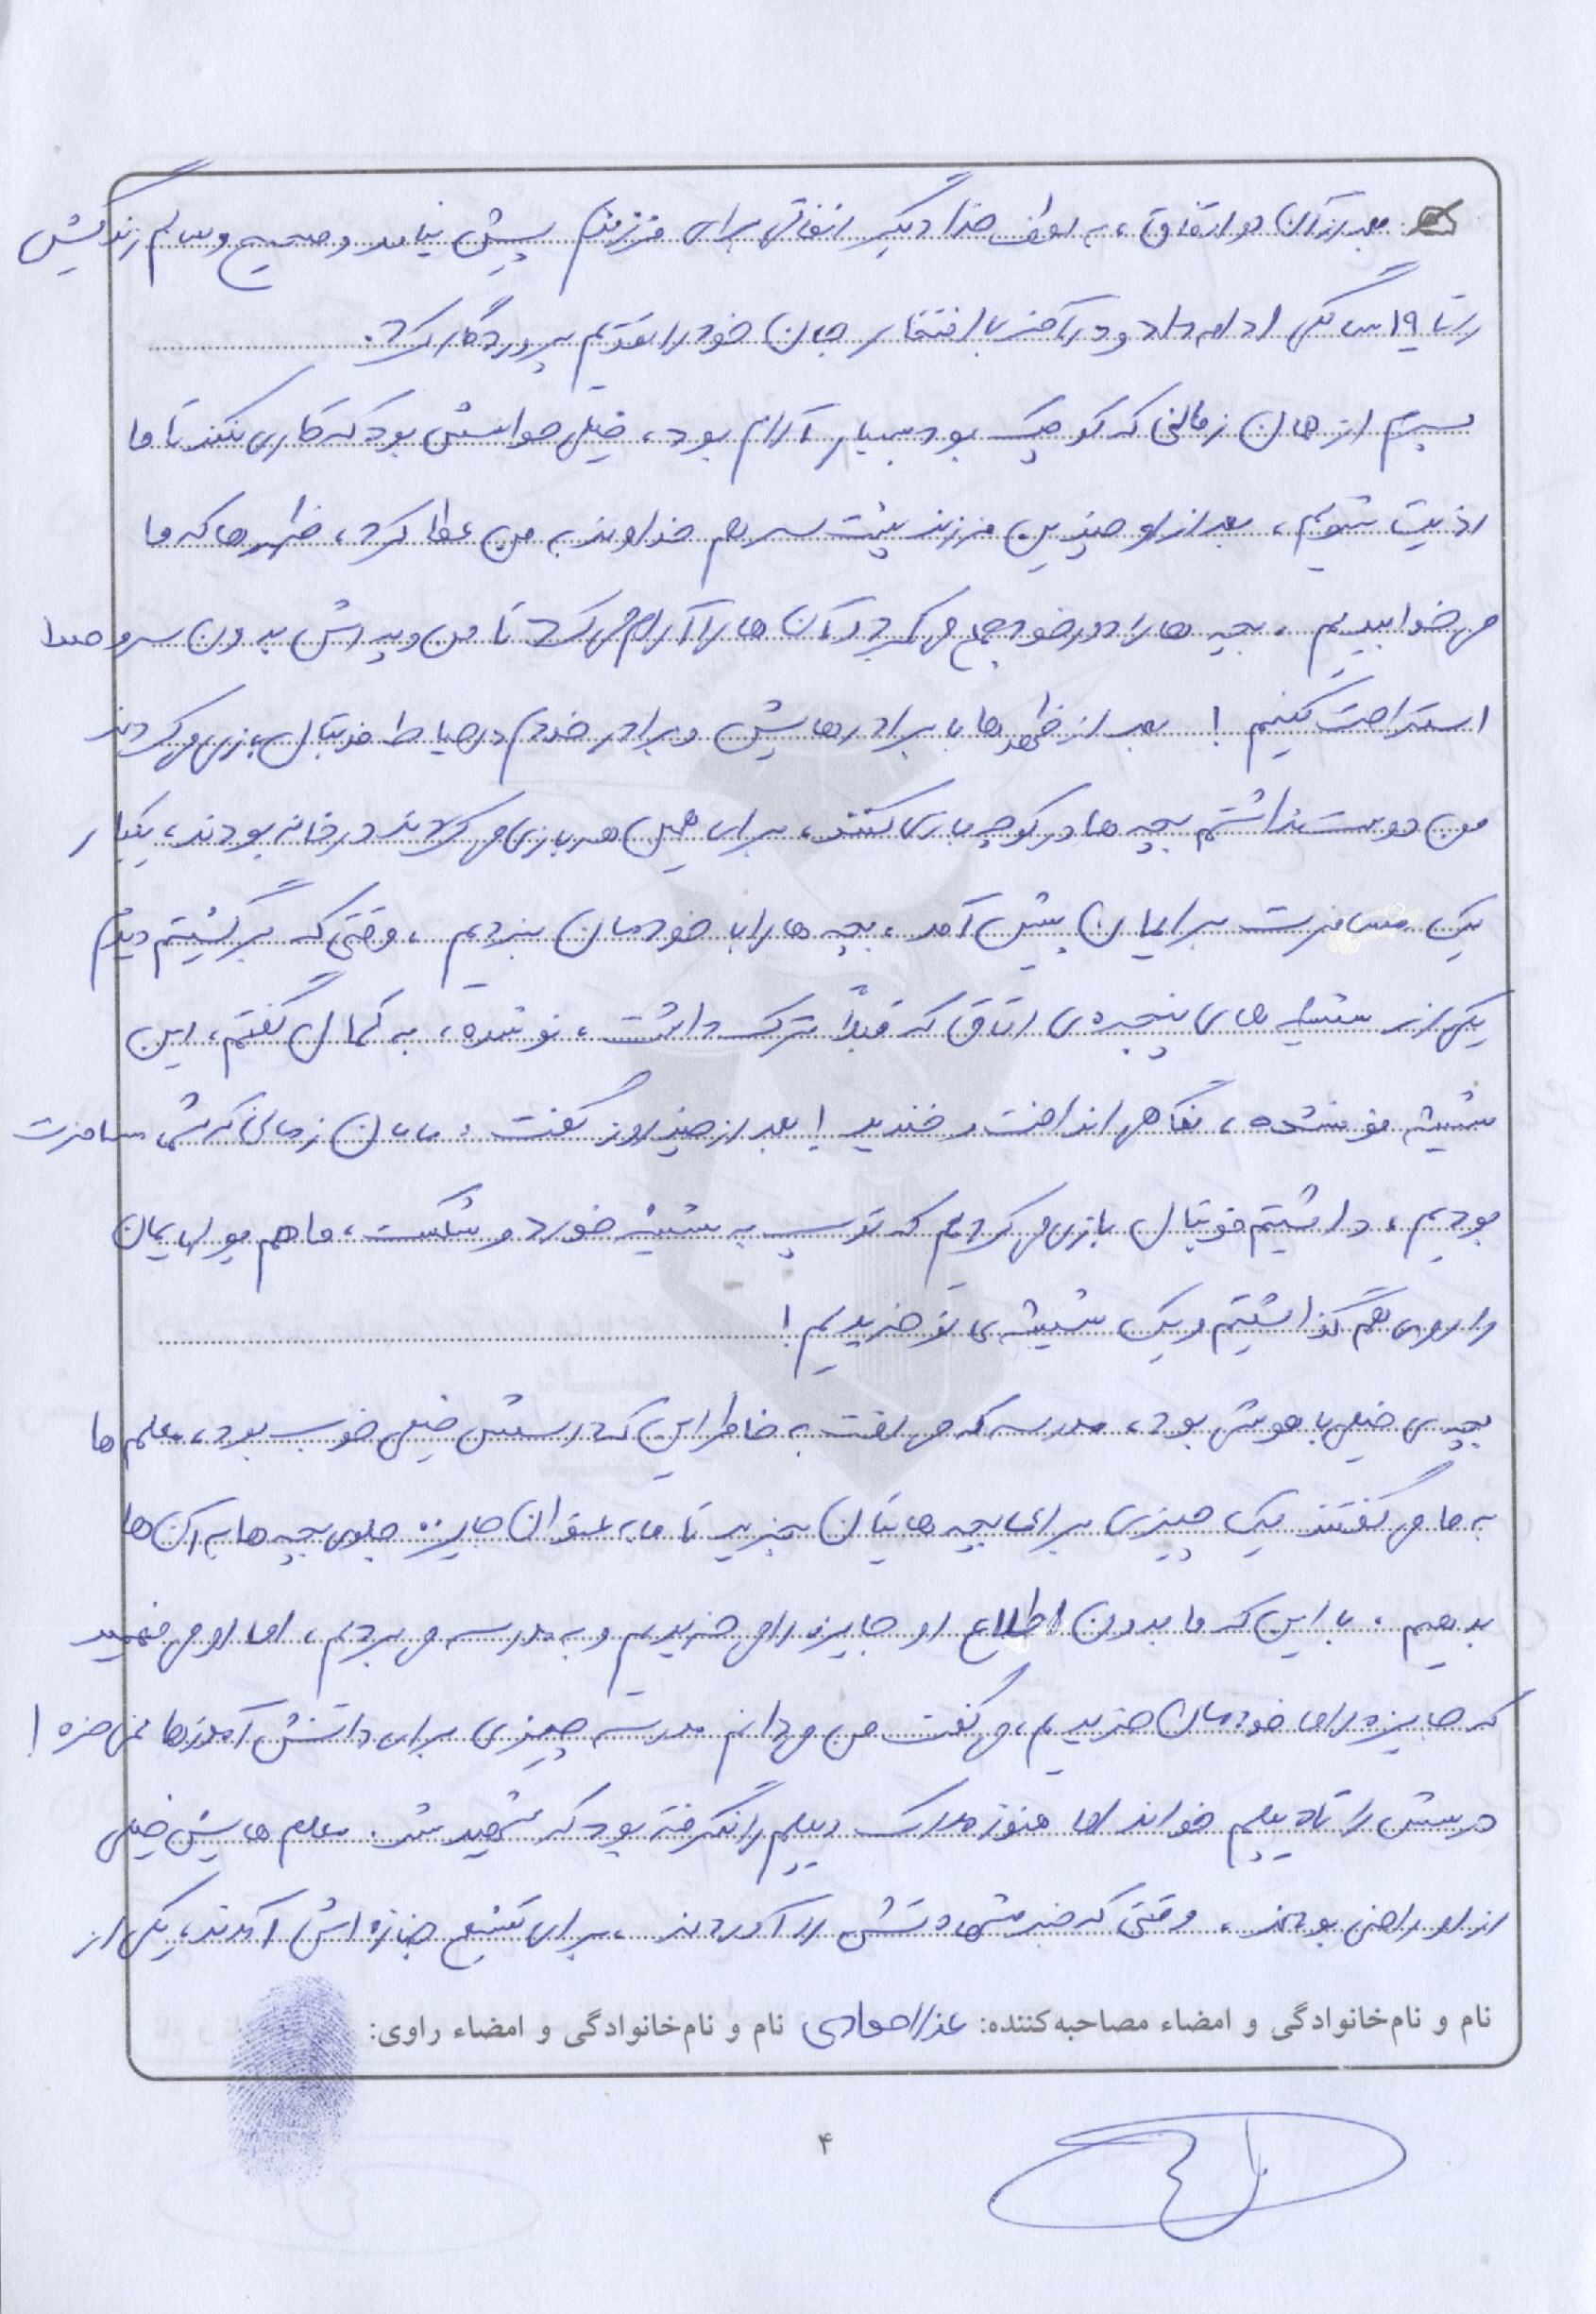 بعد از آن دو اتفاق، به لطف خدا دیگر اتفاقی برای فرزندم پیش نیامد و صحیح و سالم زندگیش
را تا ۱۹ سالگی ادامه داد و در آخر با افتخار جان خود را تقدیم پروردگار کرد.
پسرم از همان زمانی که کوچک بود بسیار آرام بود، خیلی حواسش بود که کاری نکند تا ما
اذیت شویم، بعد از او چندین فرزند پشت سر هم خداوند به من عطا کرد، ظهرها که ما
می خوابیدیم، بچه ها را دور خود جمع می کرد و آن ها را آرام می کرد تا من و پدرش بدون سر و صدا
استراحت کنیم! بعد از ظهرها با برادرهایش و برادر خودم در حیاط فوتبال بازی می کردند
من دوست نداشتم بچه ها در کوچه بازی کنند، برای همین هر بازی می کردند در خانه بودند، یکبار
یک مسافرت برایمان پیش آمد، بچه ها را با خودمان نبردیم، وقتی که برگشتیم دیدم
یکی از شیشه های پنجره ی اتاق که قبلاً ترک داشت، نو شده، به کمال گفتم، این
شیشه نو شده، نگاهی انداخت و خندید! بعد از چند روز گفت: مامان زمانی که شما مسافرت
بودیم، داشتیم فوتبال بازی می کردیم که توپ به شیشه خورد و شکست، ما هم پولهایمان
را روی هم گذاشتیم و یک شیشه ی نو خریدیم!
بچه ی خیلی با هوش بود، مدرسه که می رفت به خاطر این که درسش خیلی خوب بود، معلم ها
به ما می گفتند یک چیزی برای بچه هایتان بخرید تا ما به عنوان جایزه جلوی بچه ها به آن ها
بدهیم، با این که ما بدون اطلاع او جایزه را می خریدیم و به مدرسه می بردیم، اما او می فهمید
که جایزه را ما خودمان خریدیم، می گفت من می دانم مدرسه چیزی برای دانش آموزها نمی خره!
درسش را تا دیپلم خواند اما هنوز مدرک دیپلم را نگرفته بود که شهید شد. معلم هایش خیلی
از او راضی بودند، وقتی که خبر شهادتش را آوردند، برای تشییع جنازه اش آمدند، یکی از
نام و نام‌خانوادگی و امضاء مصاحبه‌کننده: عذرا نام و نام‌خانوادگی و امضاء راوی:
۴